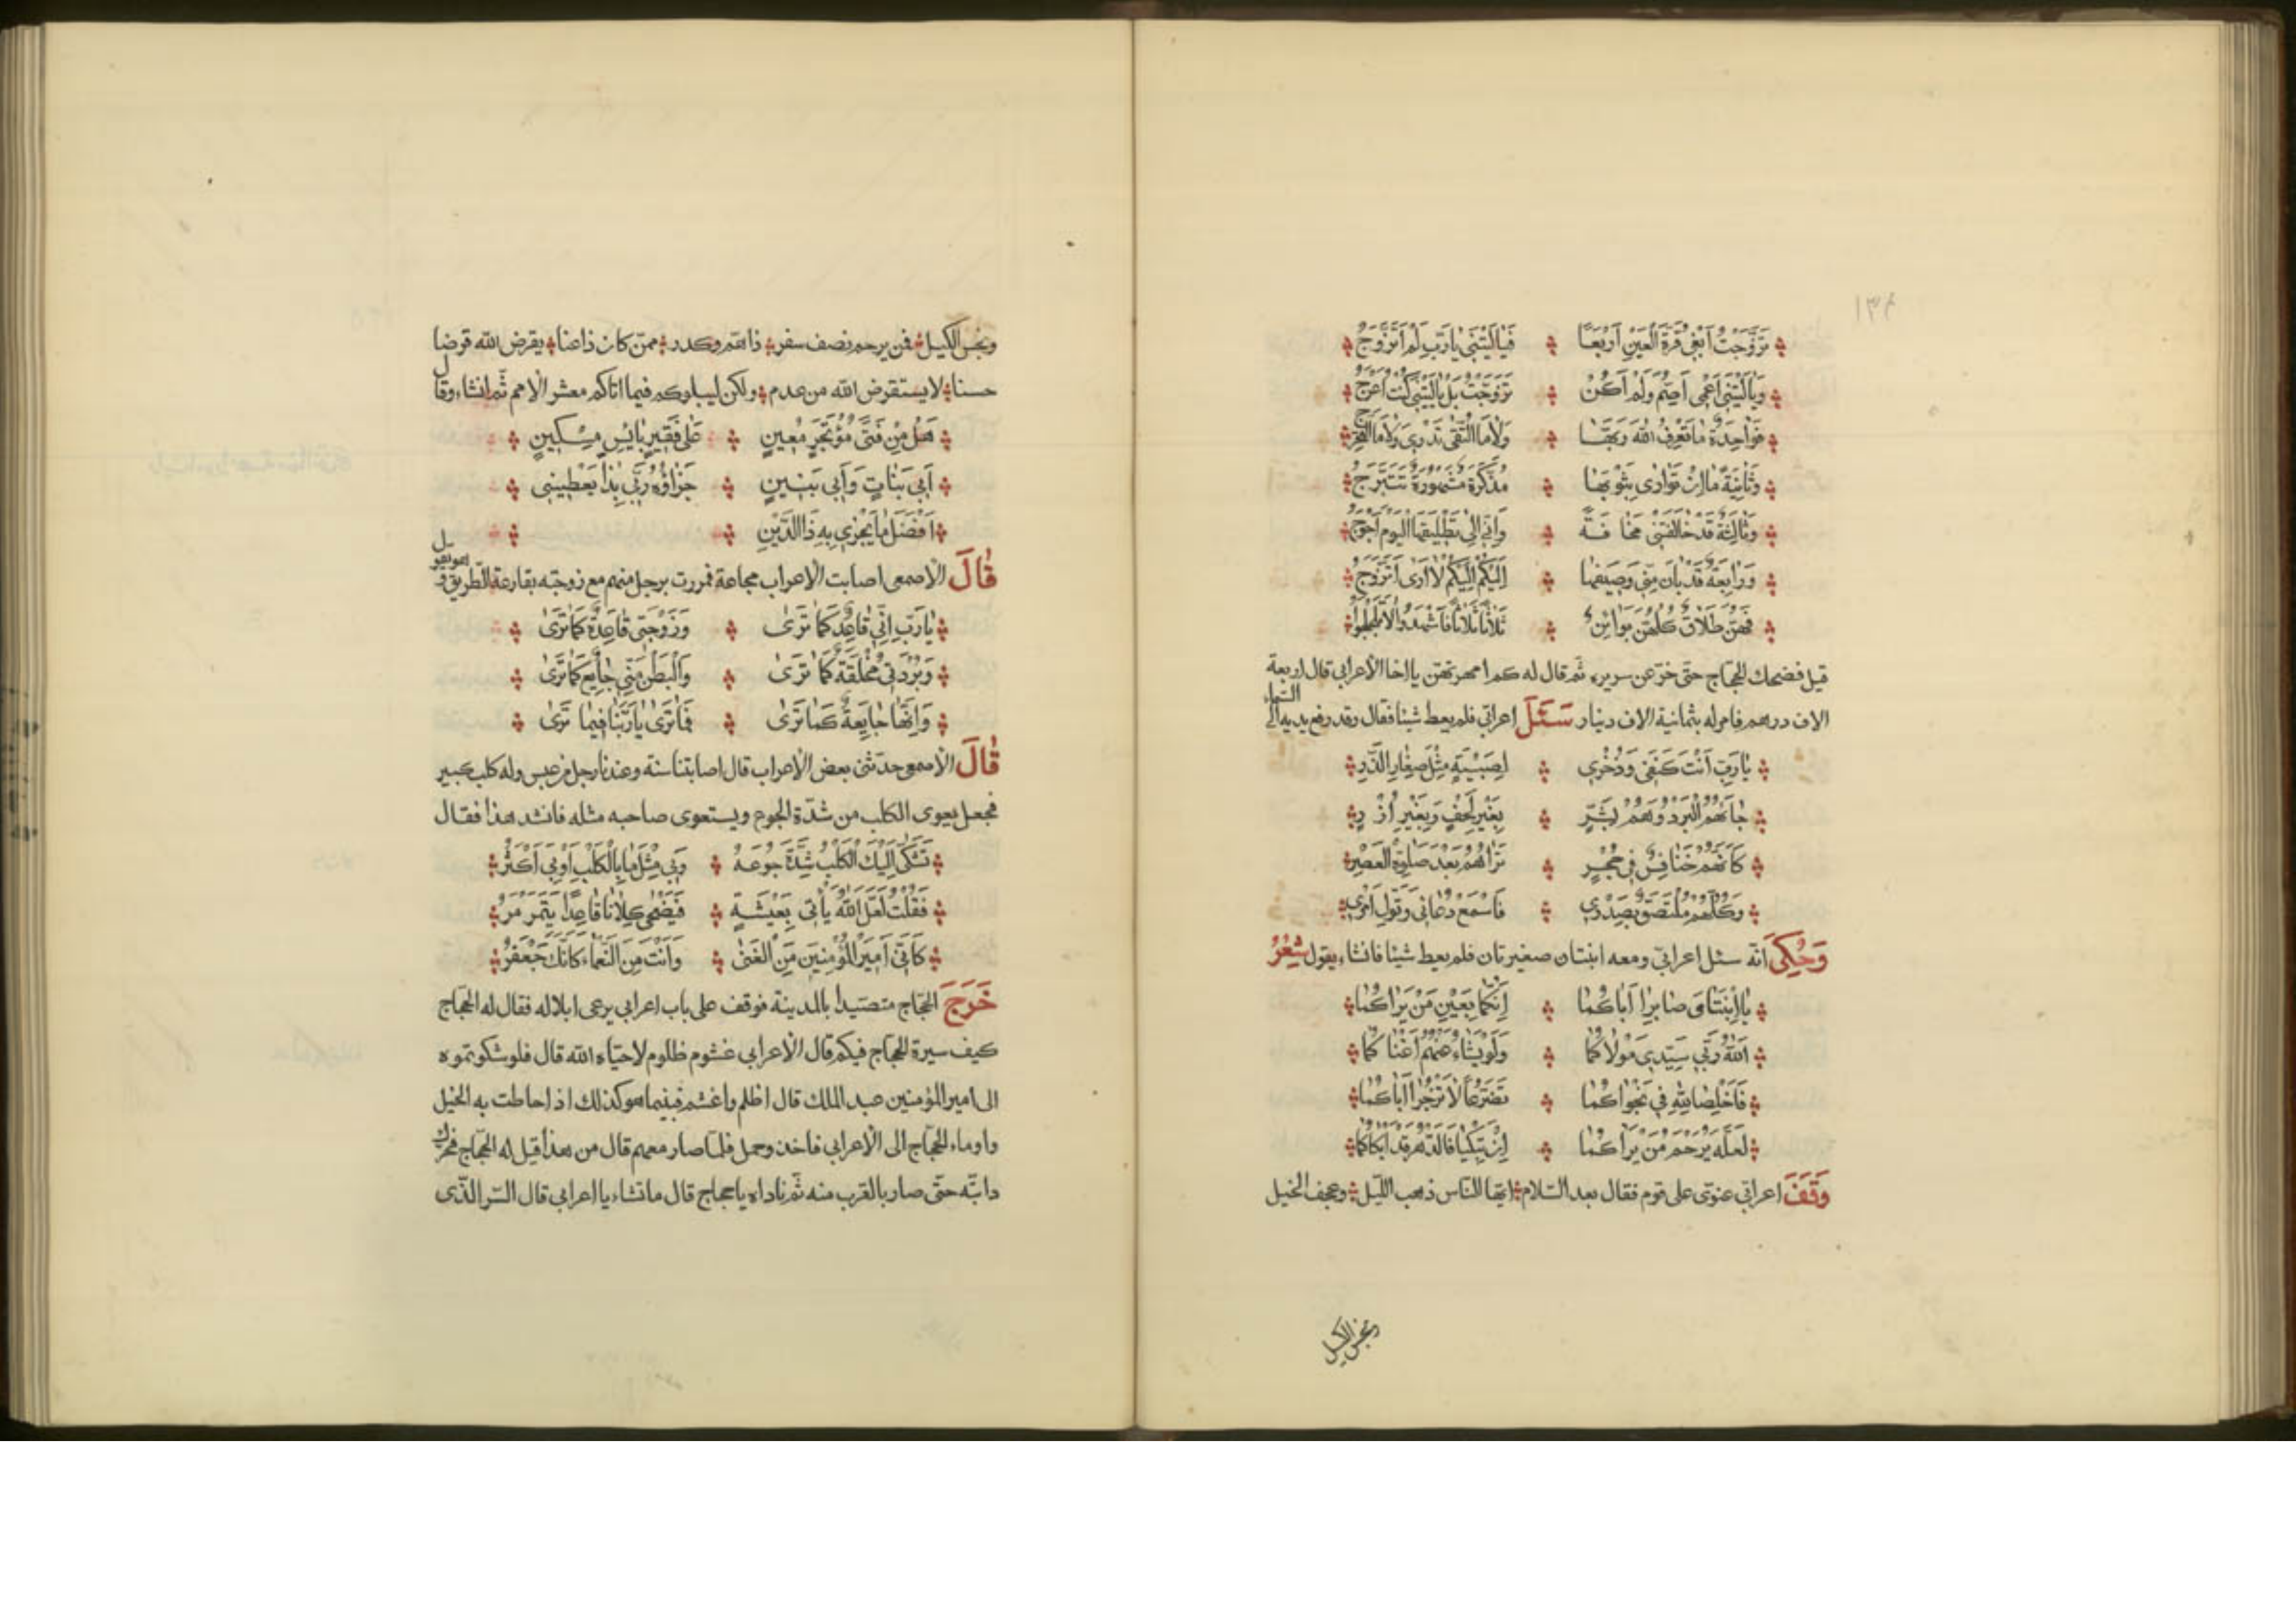 ١٣٤
تَزَوَّجْتُ اَبْغِى قُرَّةَ الْعَيْنِ اَرْبَعًا فَيَالَيْتَنِى يَارَبِّ لَمْ اَتَزَوَّجُ
وَيَالَيْتَنِى اَعْمٰى اَصَمُّ وَلَمْ اَكُنْ تَزَوَّجْتُ بَلْ يَالَيْتَنِى كُنْتُ اَعْرَجُ
فَوَاحِدَةٌ مَا تَعْرِفُ اللّٰهَ رَبَّهَا وَلَا مَا التُّقٰى تَدْرِى وَلَا مَا التَّحَرُّجُ
وَثَانِيَةٌ مَا اِنْ تَوَارٰى بِثَوْبِهَا مُذَكَّرَةٌ مَشْهُورَةٌ تَتَبَرَّجُ
وَثَالِثَةٌ قَدْ خَالَفَتْنِى مَخَافَةً وَاِنِّى اِلٰى تَطْلِيقِهَا الْيَوْمَ اَحْوَجُ
وَرَابِعَةٌ قَدْ بَانَ مِنِّى وَصِيفُهَا اِلَيْكُمْ اِلَيْكُمْ لَا اَرٰى اَتَزَوَّجُ
فَهُنَّ طَلَاقٌ كُلُّهُنَّ بَوَائِنٌ ثَلَاثًا ثَلَاثًا فَاشْهَدُوا لَا تُلَجْلِجُوا
قيل فضحك الحجّاج حتّى خرّ عن سريره ثمّ قال له كم امهرتهنّ يا اخا الاعرابى قال اربعة
الاف درهم فامر له بثمانية الاف دينار سَئَلَ اعرابىّ فلم يعط شيئا فقال وقد رفع يديه الى السّماء
يَارَبِّ اَنْتَ كَنَفِى وَذُخْرِى لِصِبْيَةٍ مِثْلِ صِغَارِ الذَّرِّ
جَاءَهُمُ الْبَرْدُ وَهُمْ بِشَرٍّ بِغَيْرِ لُحُفٍ وَبِغَيْرِ اُزُرٍ
كَاَنَّهُمْ خَنَافِسٌ فِى جُحْرٍ تَرَاهُمُ بَعْدَ صَلٰوةِ الْعَصْرِ
وَكُلُّهُمْ مُلْتَصِقٌ بِصَدْرِى فَاسْمَعْ دُعَائِى وَتَوَلَّ اَمْرِى
وَحُكِىَ انّه سئل اعرابىّ ومعه ابنتان صغيرتان فلم يعط شيئا فانشاء يقول شِعْرُ
يَا ابْنَتَاىَ صَابِرَا اَبَاكُمَا اِنَّكُمَا بِعَيْنِ مَنْ يَرَاكُمَا
اَللّٰهُ رَبِّى سَيِّدِى مَوْلَاكُمَا وَلَوْ يَشَاءُ عَنْهُمْ اَغْنَاكُمَا
فَاَخْلِصَا لِلّٰهِ فِى نَجْوَاكُمَا تَضَرُّعًا لَا تَزْجُرَا اَبَاكُمَا
لَعَلَّهُ يَرْحَمُ مَنْ يَرَاكُمَا اِنْ تَبْكِيَا فَالدَّهْرُ قَدْ اَبْكَاكُمَا
وَقَفَ اعرابىّ عنوىّ على قوم فقال بعد السّلام ايّها النّاس ذهب اللّيل وعجف الخيل
وبخس الكيل
وبخس الكيل فمن يرحم نصف سفر ذا همّ وكدر ممّن كان ذاعنا يقرض الله قرضا
حسنا لا يستقرض الله من عدم ولكن ليبلوكم فيما اتاكم معشر الامم ثمّ انشاء وقال
هَلْ مِنْ فَتًى مُؤْتَجِرٍ مُعِينٍ عَلٰى فَقِيرٍ بَائِسٍ مِسْكِينٍ
اَبِى بَنَاتٍ وَاَبِى بَنِينٍ جَزَاؤُهُ رَبِّى بِذَا يُعْطِينِى
اَفْضَلَ مَا يَجْزِى بِهِ ذَا الدَّيْنِ
قَالَ الاصمعى اصابت الاعراب مجاعة فمررت برجل منهم مع زوجته بقارعة الطّريق وهو يقول
يَارَبِّ اِنِّى قَاعِدٌ كَمَا تَرٰى وَزَوْجَتِى قَاعِدَةٌ كَمَا تَرٰى
وَبُرْدَتِى مُخْلَقَةٌ كَمَا تَرٰى وَالْبَطْنُ مِنِّى جَائِعٌ كَمَا تَرٰى
وَاِنَّهَا جَايِعَةٌ كَمَا تَرٰى فَمَا تَرٰى يَارَبَّنَا فِيمَا تَرٰى
قَالَ الاصمعى حدّثنى بعض الاعراب قال اصابتنا سنة وعندنا رجل من عبس وله كلب كبير
فجعل يعوى الكلب من شدّة الجوع ويستعوى صاحبه مثله فانشد هذا فقال
تَشَكّٰى اِلَيْكَ الْكَلْبُ شِدَّةَ جُوعَهُ وَبِى مِثْلُ مَا بِالْكَلْبِ اَوْ بِى اَكْثَرُ
فَقُلْتُ لَعَلَّ اللّٰهَ يَأْتِى بِعَيْشَةٍ فَيُضْحِى كِلَانَا قَاعِدًا يَتَمَرْمَرُ
كَاَنِّى اَمِيرُ الْمُؤْمِنِينَ مِنَ الْغِنٰى وَاَنْتَ مِنَ النَّعْمَاءِ كَاَنَّكَ جَعْفَرُ
خَرَجَ الحجّاج متصيّدا بالمدينة فوقف على باب اعرابى يرعى ابلا له فقال له الحجّاج
كيف سيرة الحجّاج فيكم قال الاعرابى غشوم ظلوم لا حيّاه الله قال فلو شكوتموه
الى امير المؤمنين عبد الملك قال اظلم واغشم فبينما هو كذلك اذ احاطت به الخيل
واوماء الحجّاج الى الاعرابى فاخذ وحمل فلمّا صار معهم قال من هذا قيل له الحجّاج فحرّك
دابّته حتّى صار بالقرب منه ثمّ ناداه يا حجاج قال ما تشاء يا اعرابى قال السّر الّذى